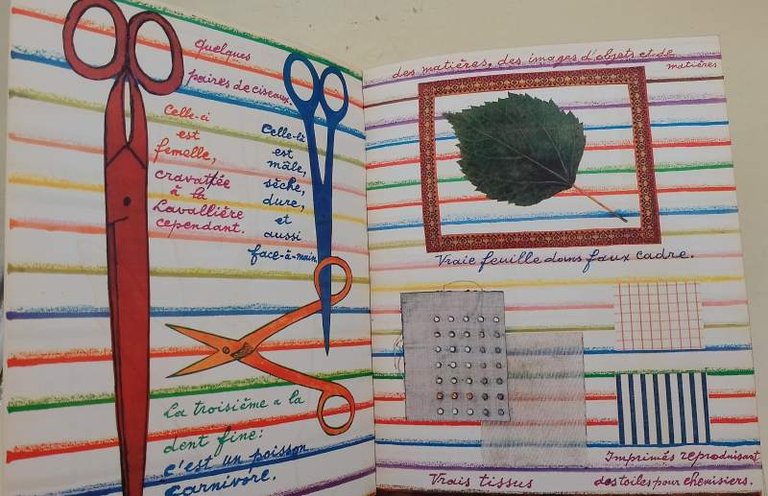 Quelques
paires de ciseaux.
Celle-ci
est
femelle,
cravattée
à la
Lavallière
cependant.
Celle-là
est
mâle,
sèche,
dure,
et
aussi
face-à-main
La troisième a la
dent fine:
c'est un poisson
carnivore.
des matières, des images d'objets et de
matières
Vraie feuille dans faux cadre.
Vrais tissus
Imprimés reproduisant
des toiles pour chemisiers.